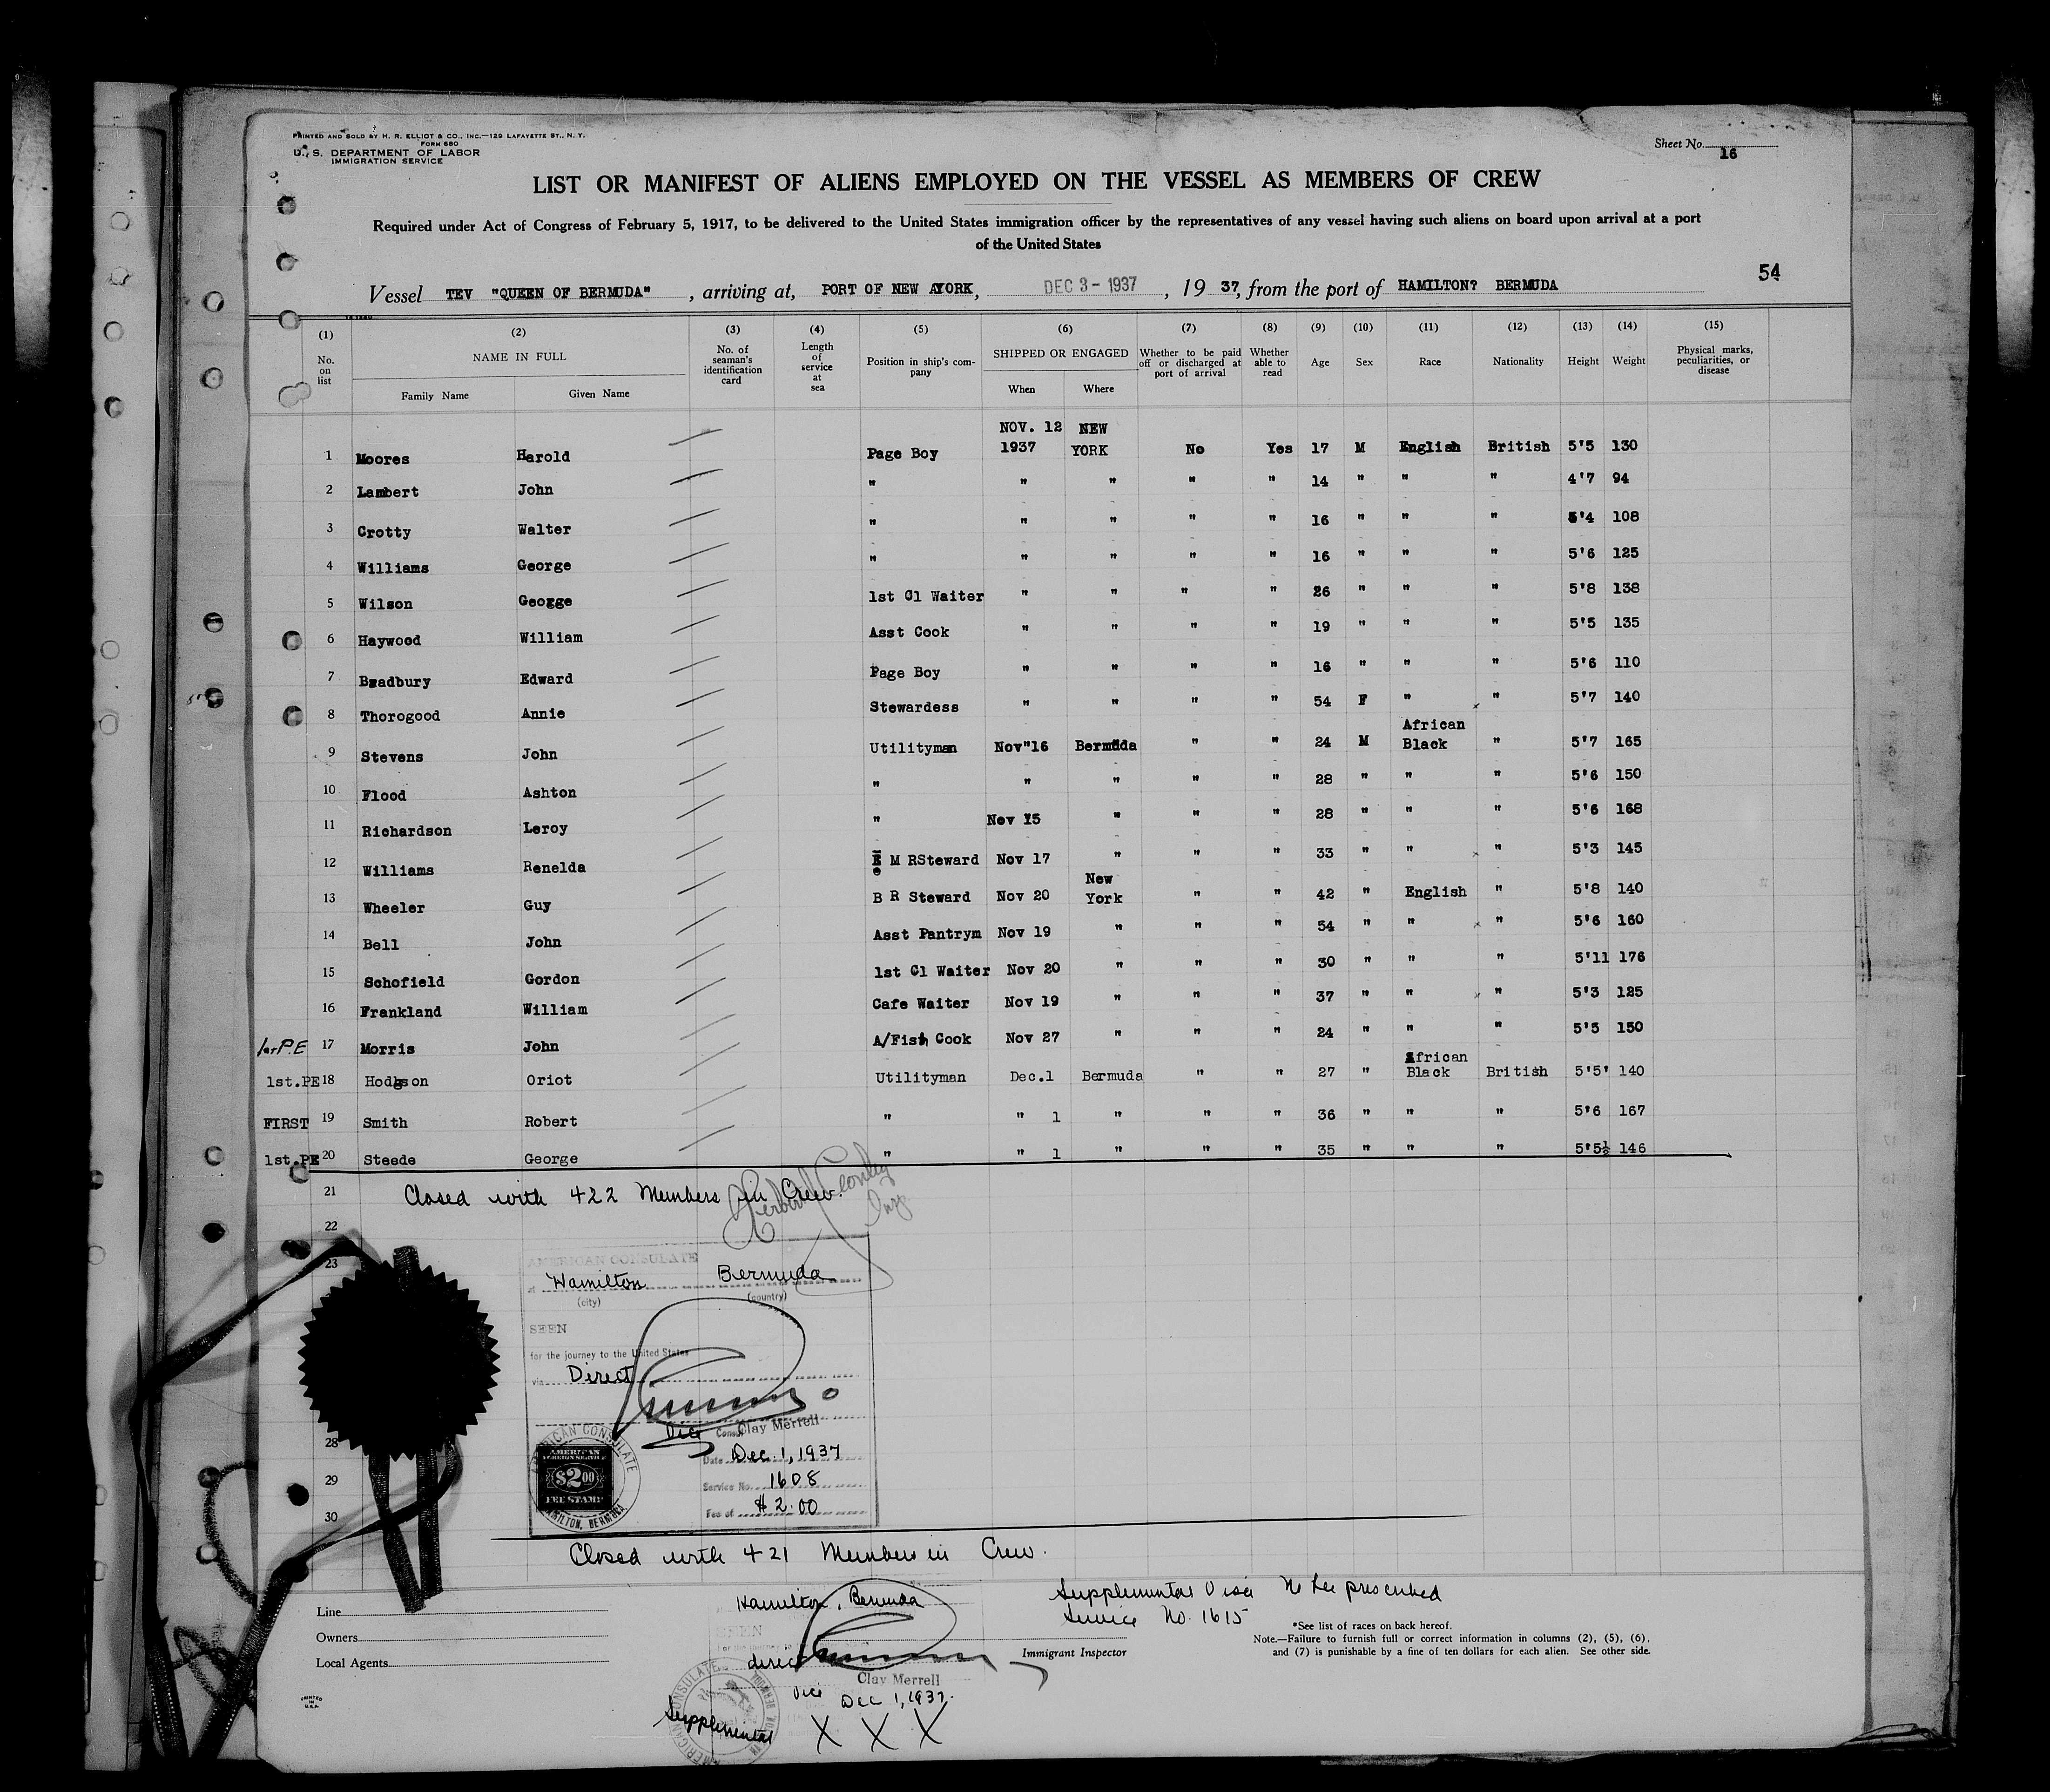 PRINTED AND SOLD BY H. R. ELLIOT & CO., INC.—129 LAFAYETTE ST., N. Y.
FORM 680
U. S. DEPARTMENT OF LABOR
IMMIGRATION SERVICE
Sheet No. 16
LIST OR MANIFEST OF ALIENS EMPLOYED ON THE VESSEL AS MEMBERS OF CREW
Required under Act of Congress of February 5, 1917, to be delivered to the United States immigration officer by the representatives of any vessel having such aliens on board upon arrival at a port
of the United States
54
Vessel TEV "QUEEN OF BERMUDA" , arriving at, PORT OF NEW AYORK, DEC 3 - 1937 , 19 37, from the port of HAMILTON? BERMUDA
(1) (2) (3) (4) (5) (6) (7) (8) (9) (10) (11) (12) (13) (14) (15)
No. on list NAME IN FULL Family Name Given Name No. of seaman's identification card Length of service at sea Position in ship's company SHIPPED OR ENGAGED When Where Whether to be paid off or discharged at port of arrival Whether able to read Age Sex Race Nationality Height Weight Physical marks, peculiarities, or disease
1 Moores Harold Page Boy NOV. 12 1937 NEW YORK No Yes 17 M English British 5'5 130
2 Lambert John " " " " " 14 " " " 4'7 94
3 Crotty Walter " " " " " 16 " " " 5'4 108
4 Williams George " " " " " 16 " " " 5'6 125
5 Wilson George 1st Cl Waiter " " " " 26 " " " 5'8 138
6 Haywood William Asst Cook " " " " 19 " " " 5'5 135
7 Bradbury Edward Page Boy " " " " 16 " " " 5'6 110
8 Thorogood Annie Stewardess " " " " 54 F " " 5'7 140
9 Stevens John Utilityman Nov"16 Bermuda " " 24 M African Black " 5'7 165
10 Flood Ashton " " " " " 28 " " " 5'6 150
11 Richardson Leroy " Nov 15 " " " 28 " " " 5'6 168
12 Williams Renelda E M RSteward Nov 17 " " " 33 " " " 5'3 145
13 Wheeler Guy B R Steward Nov 20 New York " " 42 " English " 5'8 140
14 Bell John Asst Pantrym Nov 19 " " " 54 " " " 5'6 160
15 Schofield Gordon 1st Cl Waiter Nov 20 " " " 30 " " " 5'11 176
16 Frankland William Cafe Waiter Nov 19 " " " 37 " " " 5'3 125
1st P.E 17 Morris John A/Fish Cook Nov 27 " " " 24 " " " 5'5 150
1st.PE 18 Hodgson Oriot Utilityman Dec.1 Bermuda " " 27 " African Black British 5'5' 140
FIRST 19 Smith Robert " " 1 " " " 36 " " " 5'6 167
1st.PE 20 Steede George " " 1 " " " 35 " " " 5'5½ 146
21 Closed with 422 Members in Crew.
22
23
AMERICAN CONSULATE
at Hamilton Bermuda
(city) (country)
SEEN
for the journey to the United States
via Direct
Vice Consul Clay Merrell
Date Dec. 1, 1937
Service No. 1608
Fee of $2.00
AMERICAN CONSULATE
AMERICAN FOREIGN SERVICE $2.00 FEE STAMP
HAMILTON, BERMUDA
28
29
30
Closed with 421 Members in Crew.
Hamilton, Bermuda
SEEN
direct
Clay Merrell
Vice Dec 1, 1937.
Supplemental X X X
Supplemental Visa No fee prescribed
Service No. 1615
Line
Owners
Local Agents
Immigrant Inspector
*See list of races on back hereof.
Note.—Failure to furnish full or correct information in columns (2), (5), (6),
and (7) is punishable by a fine of ten dollars for each alien. See other side.
PRINTED IN U.S.A.